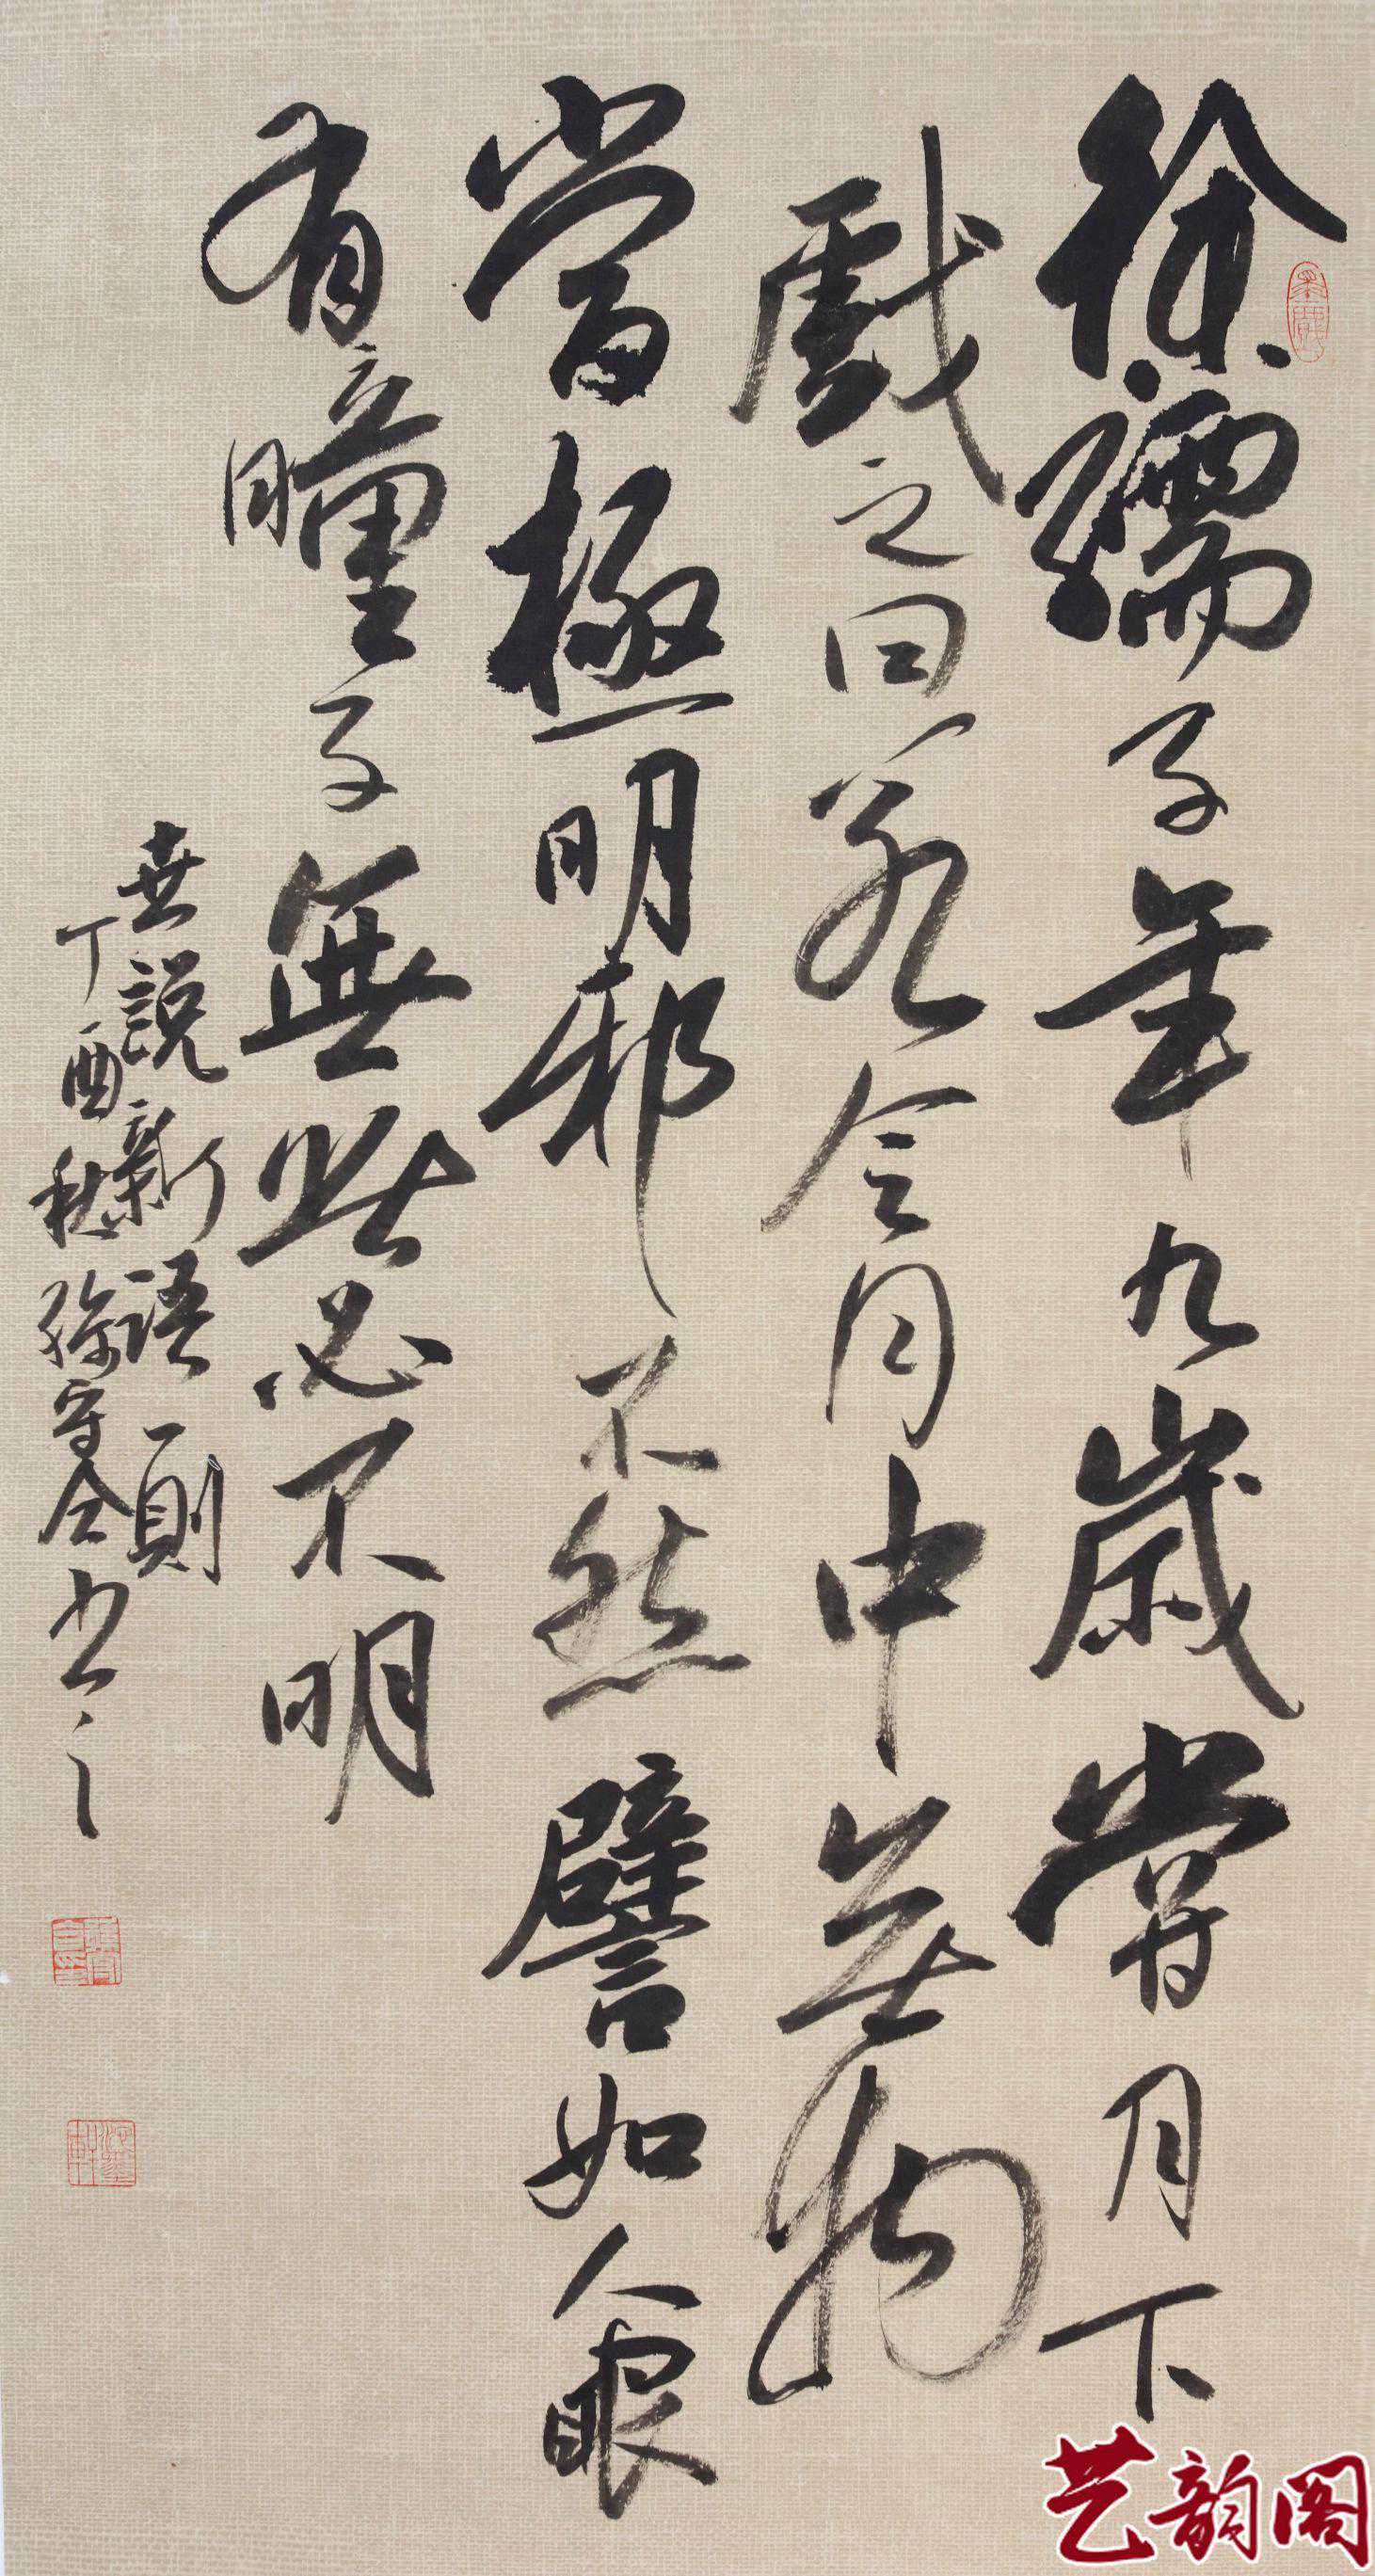 徐孺子年九歲嘗月下
戲之曰若令月中無物
當極明邪不然譬如人眼
有瞳子無此必不明
世說新語一則
丁酉秋孫守全书之
艺韵阁